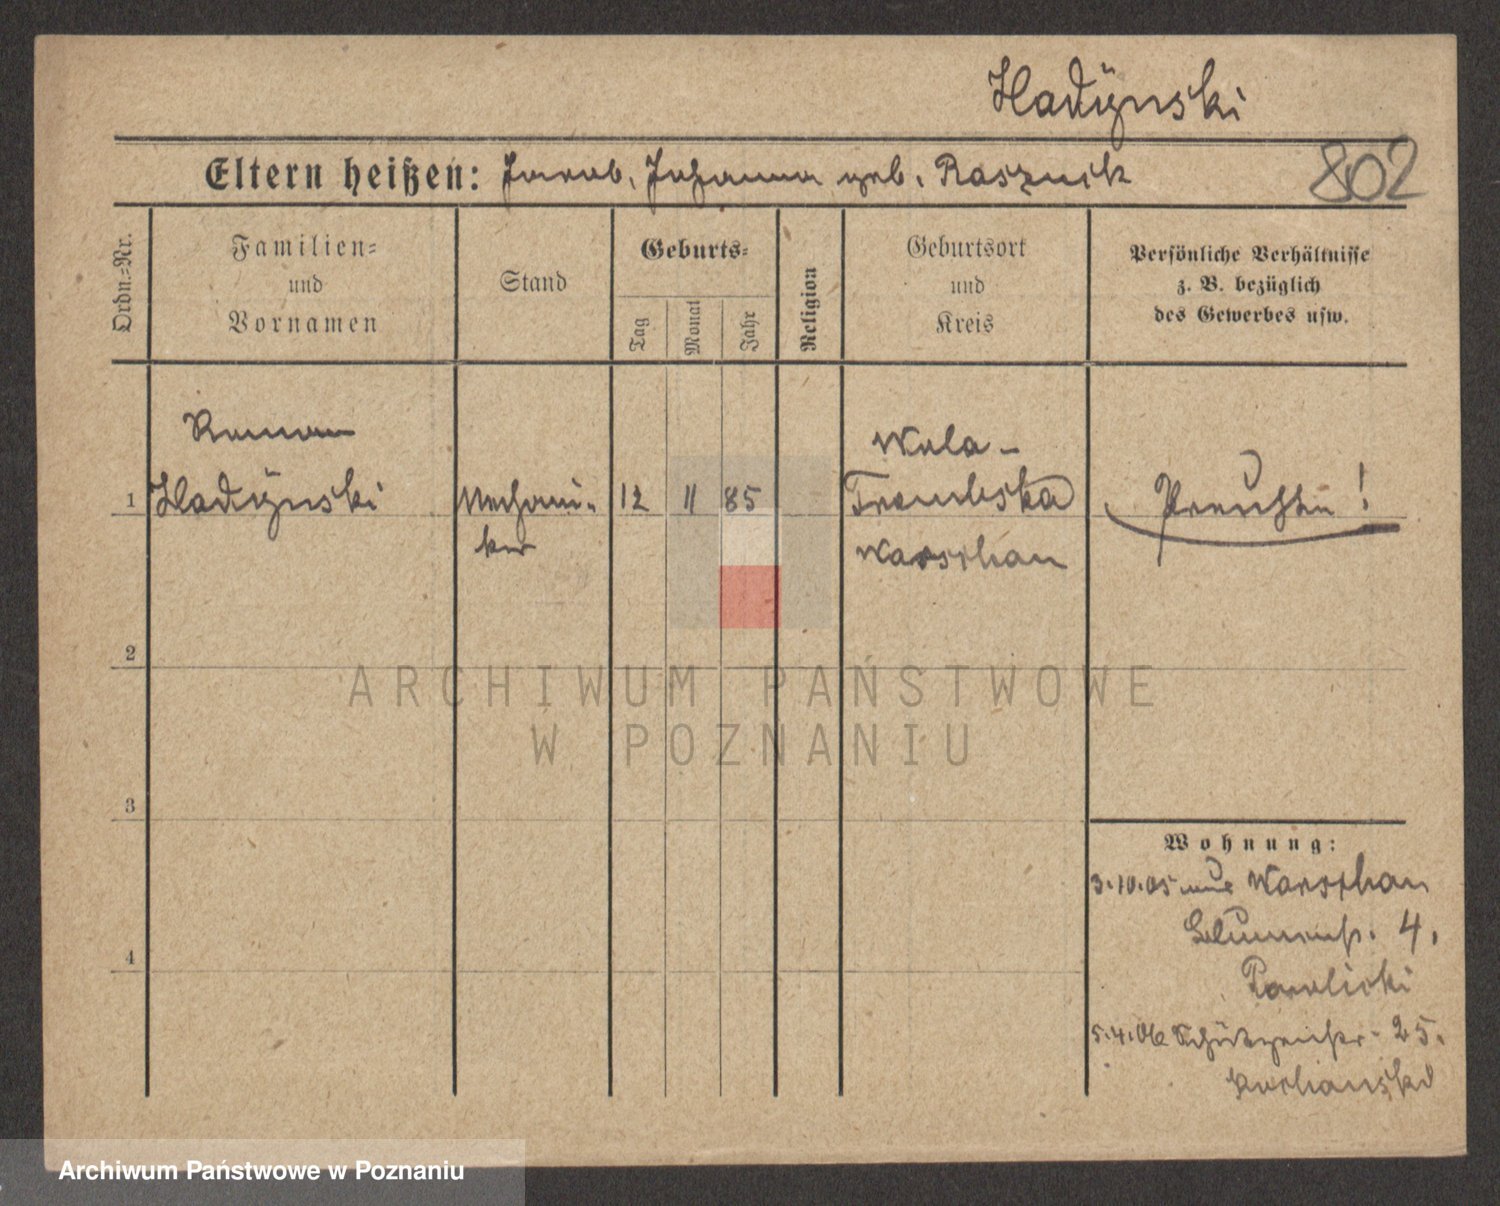 Hadÿnski
Eltern heißen: Jacob, Johanna geb. Rasznick
802
Ordn.-Nr.
Familien-
und
Vornamen
Stand
Geburts-
Tag
Monat
Jahr
Religion
Geburtsort
und
Kreis
Persönliche Verhältnisse
z. B. bezüglich
des Gewerbes usw.
Roman
1 Hadÿnski
Mechani-
ker
12 11 85
Wola-
Trombska
Warschau
Preuße!
2
3
4
Wohnung:
3.10.05 aus Warschau
Blumenstr. 4.
Pawlicki
5.4.06 Schützenstr. 25.
ARCHIWUM PAŃSTWOWE
W POZNANIU
Archiwum Państwowe w Poznaniu